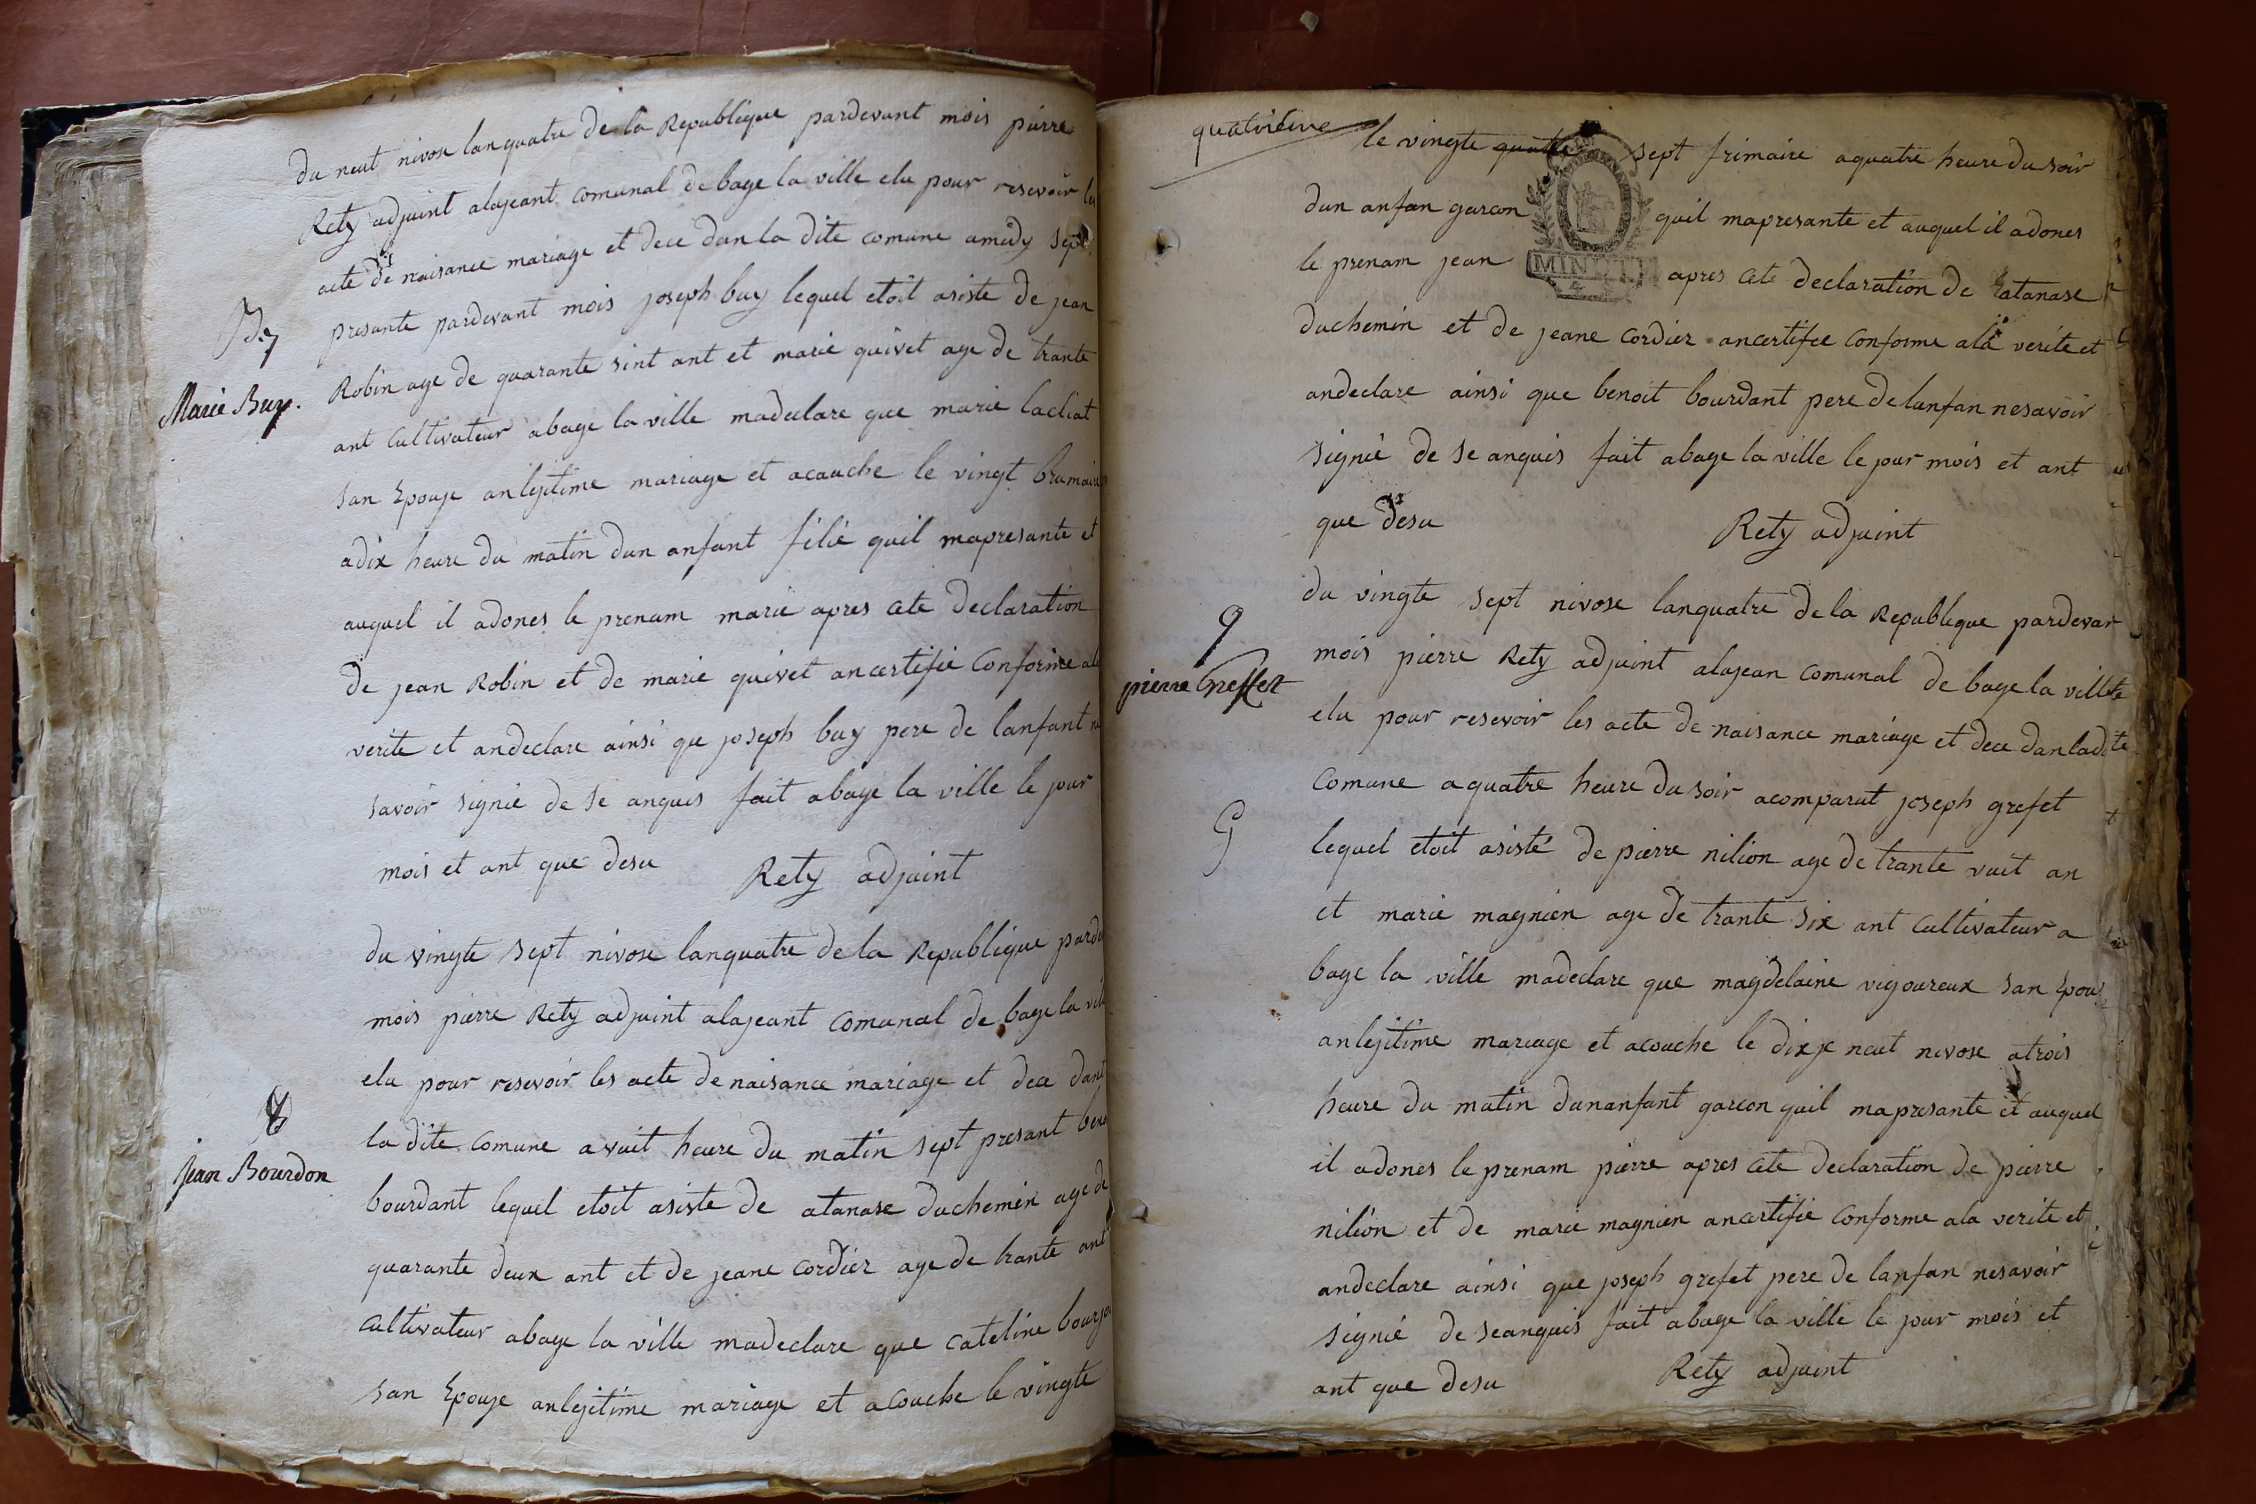 du neut nivose lanquatre de la Republique pardevant mois pierre
Rety adjuint alajeant comunal de bage la ville elu pour resevoir les
acte de naisance mariage et dece dan la dite comune amidy sept
7
presante pardevant mois joseph buy lequel etoit asiste de jean
Marie Buy.
Robin age de quarante sint ant et marie quivet age de trante
ant cultivateur abage la ville madeclare que marie lacliat
san Epouse anlejitime mariage et acauche le vingt brumaire
adix heure du matin dun anfant filie quil mapresante et
auquel il adones le prenam marie apres cete declaration
de jean Robin et de marie quivet ancertifie Conforme ala
verite et andeclare ainsi que joseph buy pere de lanfant ne
savoir signie de se anquis fait abage la ville le jour
mois et ant que desu Rety adjuint
du vingte sept nivose lanquatre de la Republique parde
mois pierre Rety adjuint alajeant comunal de bage la vile
elu pour resevoir les acte de naisance mariage et dece dant
8
la dite comune avuit heure du matin sept presant beno
Jean Bourdon
bourdant lequel etoit asiste de atanase duchemin age de
quarante deux ant et de jeane cordier age de trante ant
cultivateur abage la ville madeclare que cateline
san Epouse anlejitime mariage et acouche le vingte
quatrieme
le vingte quatre sept frimaire aquatre heure du soir
dun anfan garcon quil mapresante et auquel il adones
le prenam jean apres cete declaration de atanase
duchemin et de jeane cordier ancertifie conforme ala verite et
andeclare ainsi que benoit bourdant pere de lanfan nesavoir
signie de se anquis fait abage la ville le jour mois et ant
que desu Rety adjuint
du vingte sept nivose lanquatre de la Republique pardevan
9
mois pierre Rety adjuint alajean comunal de bage la ville
pierre Greffet
elu pour resevoir les acte de naisance mariage et dece dan ladite
comune a quatre heure du soir acomparut joseph grefet
G
lequel etoit asisté de pierre nilion age de trante vuit an
et marie magnien age de trante six ant cultivateur a
bage la ville madeclare que magdelaine vigoureux san Epouse
anlejitime mariage et acouche le dixje neut nivose atrois
heure du matin dunanfant garcon quil mapresante et auquel
il adones le prenam pierre apres cete declaration de pierre
nilion et de marie magnien ancertifie conforme ala verite et
andeclare ainsi que joseph grefet pere de lanfan nesavoir
signie de seanquis fait abage la ville le jour mois et
ant que desu Rety adjuint